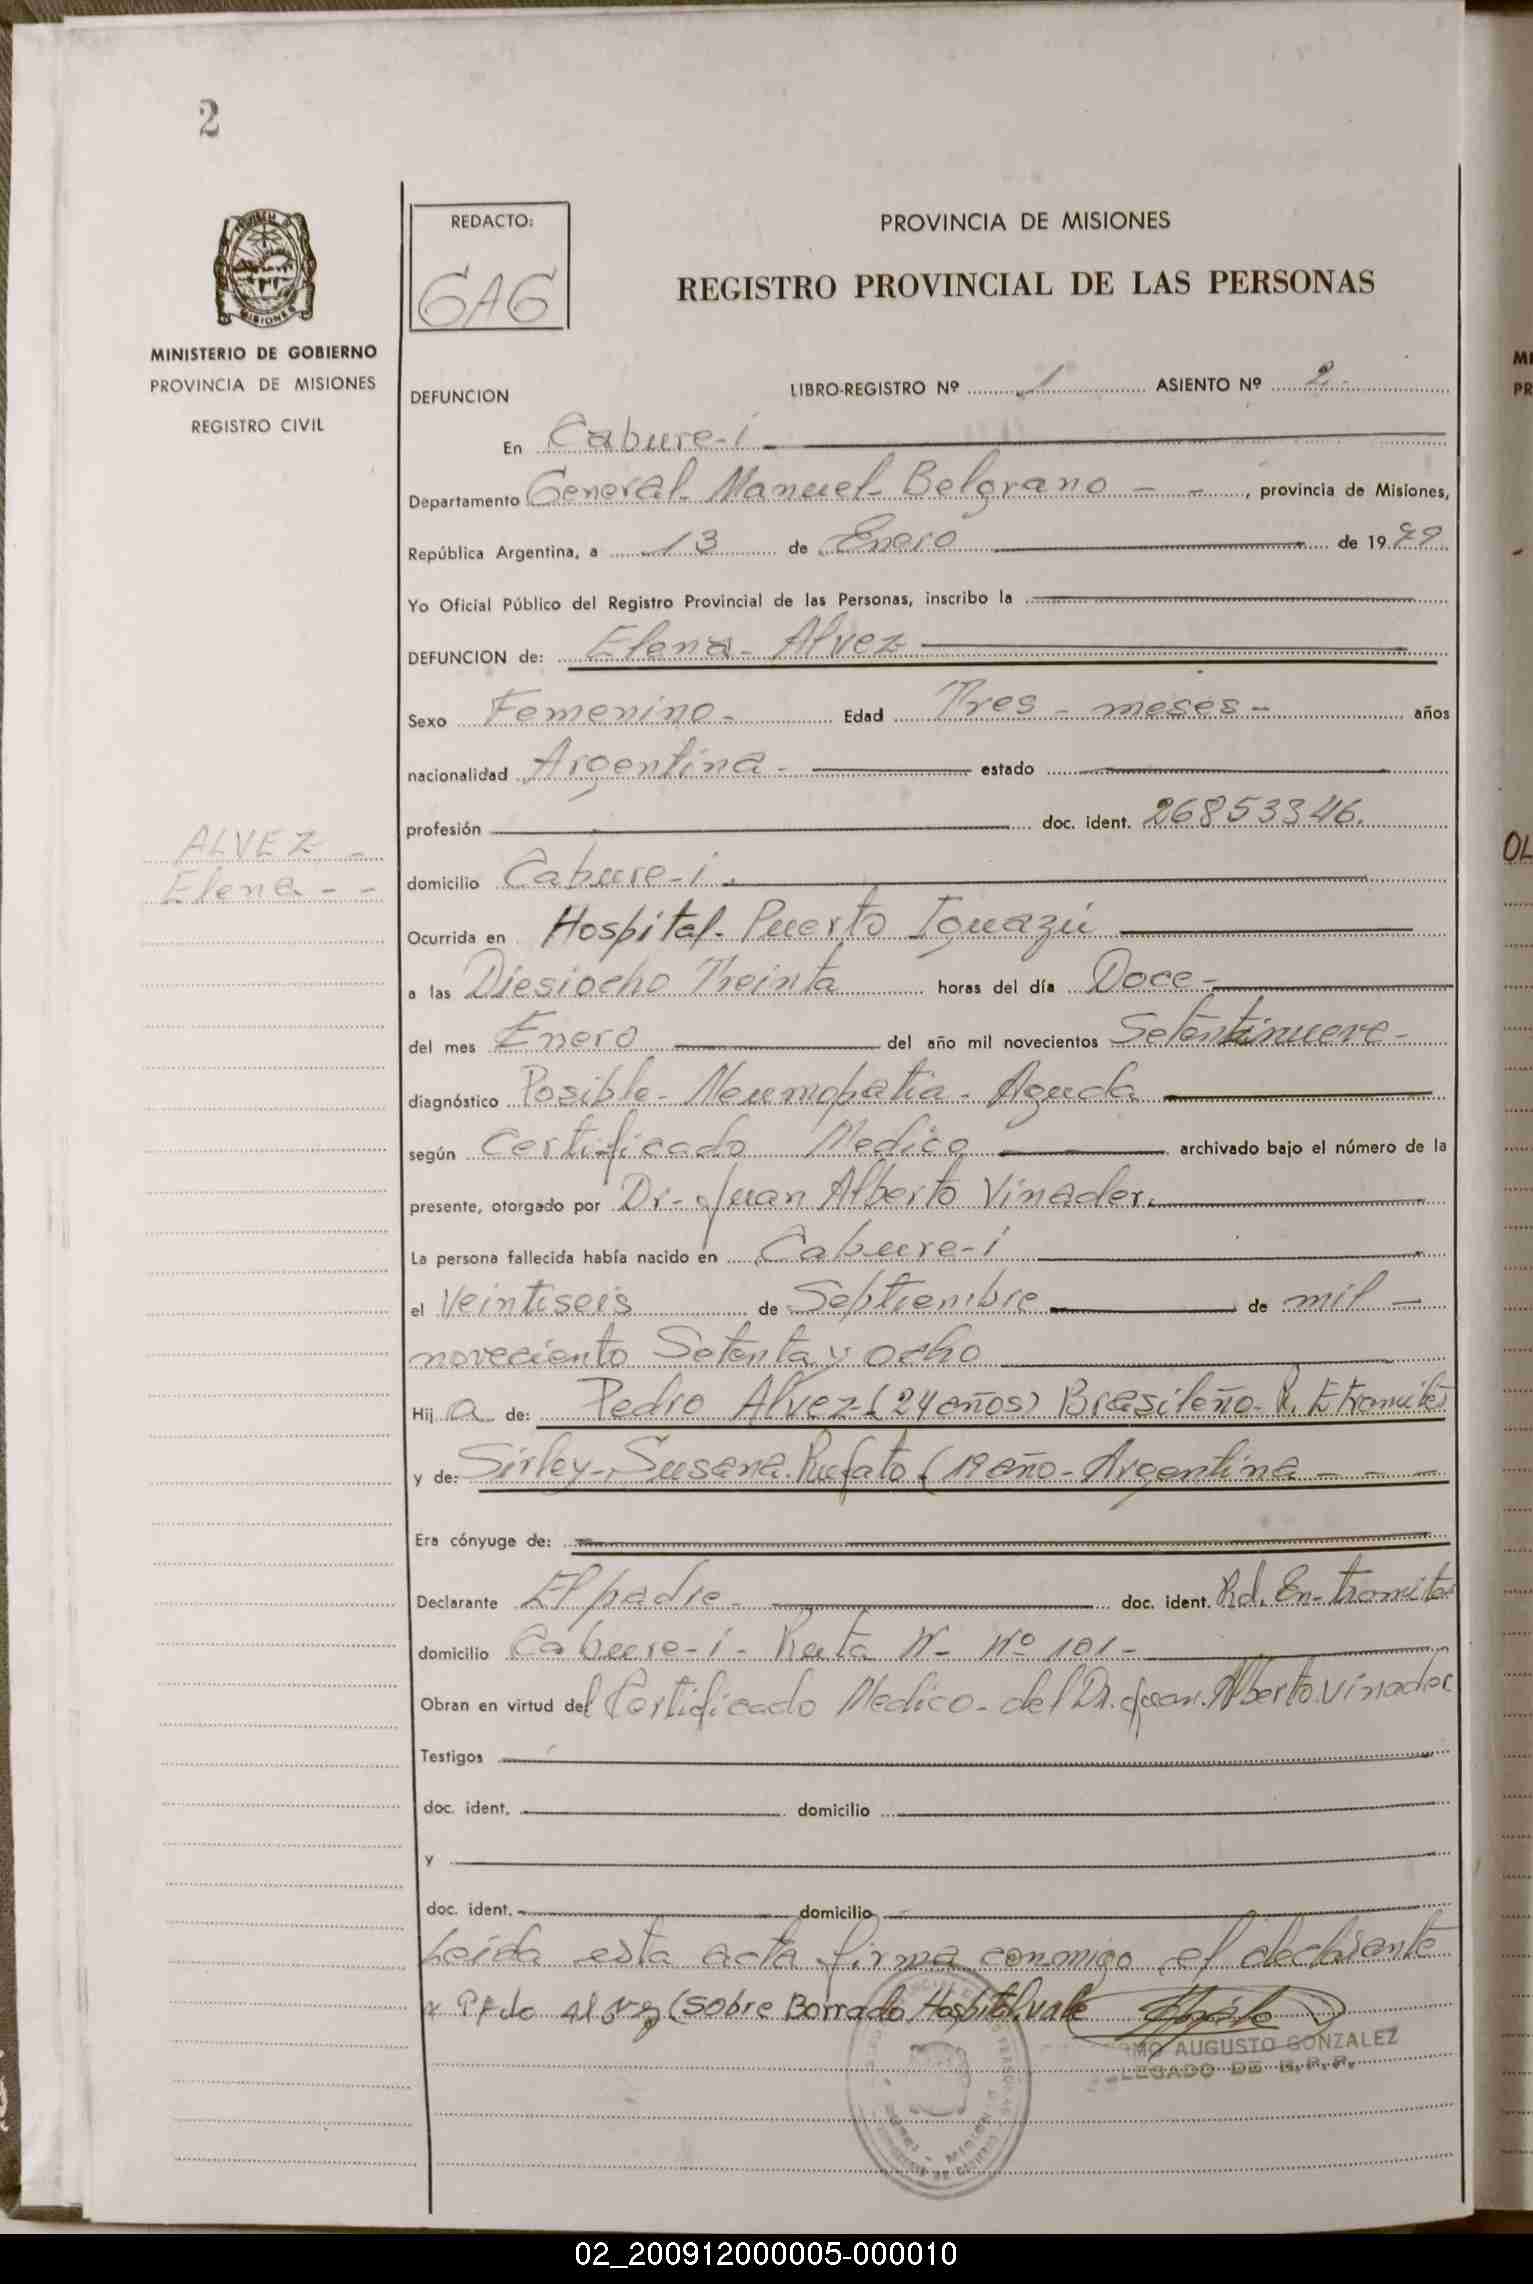 2
REDACTO:
GAG
PROVINCIA DE MISIONES
REGISTRO PROVINCIAL DE LAS PERSONAS
MINISTERIO DE GOBIERNO
PROVINCIA DE MISIONES
REGISTRO CIVIL
DEFUNCION LIBRO-REGISTRO Nº 1 ASIENTO Nº 2.
En Cabure-i
Departamento General-Manuel-Belgrano - - , provincia de Misiones,
República Argentina, a 13 de Enero de 1979
Yo Oficial Público del Registro Provincial de las Personas, inscribo la
DEFUNCION de: Elena-Alvez
Sexo Femenino- Edad Tres-meses- años
nacionalidad Argentina- estado
profesión doc. ident. 26853346.
ALVEZ -
Elena - -
domicilio Cabure-i.
Ocurrida en Hospital-Puerto Iguazú
a las Diesiocho Treinta horas del día Doce-
del mes Enero del año mil novecientos Setentinueve-
diagnóstico Posible-Neumopatia-Aguda
según Certificado Medico archivado bajo el número de la
presente, otorgado por Dr-Juan Alberto Vinader.
La persona fallecida había nacido en Cabure-i
el Veintiseis de Septiembre de mil -
noveciento Setenta y ocho
Hij a de: Pedro Alvez-(24 años) Brasileño-R. E tramite
y de: Sirley-Susana-Rufato (19 año-Argentina - - -
Era cónyuge de:
Declarante El padre- doc. ident. Rd. En-tramite
domicilio Cabure-i-Ruta N- Nº 101-
Obran en virtud del Certificado Medico-del Dr. Juan. Alberto Vinader
Testigos
doc. ident. domicilio
y
doc. ident. domicilio
Leida esta acta firma conmigo el declarante
(Sobre Borrado Hospital vale
AUGUSTO GONZALEZ
LEGADO DE R.P.P.
02_200912000005-000010